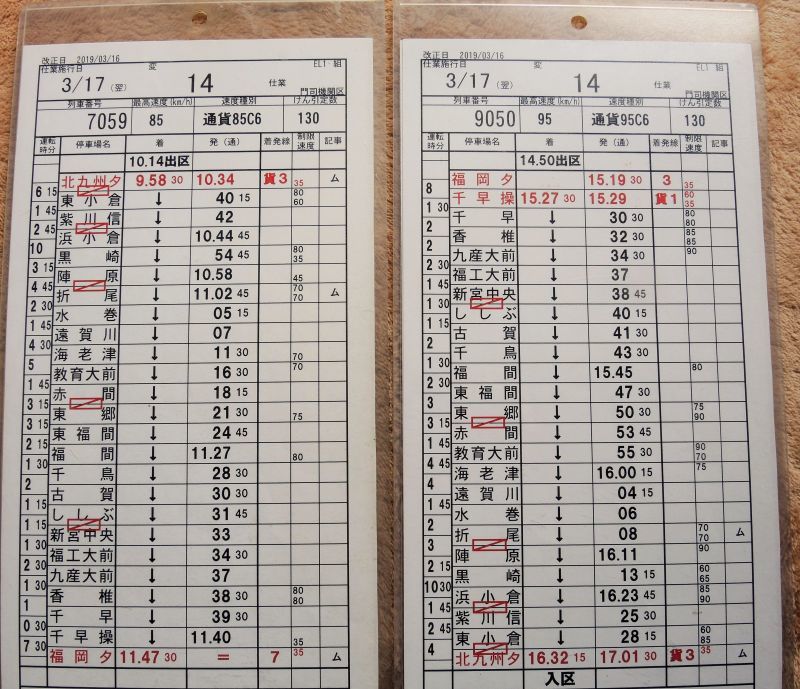 改正日 2019/03/16
仕業施行日 変 EL1 組
3/17 (翌) 14 仕業
門司機関区
列車番号 最高速度(km/h) 速度種別 けん引定数
7059 85 通貨85C6 130
運転時分 停車場名 着 発(通) 着発線 制限速度 記事
10.14出区
北九州タ 9.58 30 10.34 貨3 35 ム
6 15
東小倉 ↓ 40 15 80 60
1 45
紫川信 ↓ 42
2 45
浜小倉 ↓ 10.44 45
10
黒崎 ↓ 54 45 80 35
3 15
陣原 ↓ 10.58 45
4 45
折尾 ↓ 11.02 45 70 70 ム
2 30
水巻 ↓ 05 15
1 45
遠賀川 ↓ 07
4 30
海老津 ↓ 11 30 70
5
教育大前 ↓ 16 30 70
1 45
赤間 ↓ 18 15
3 15
東郷 ↓ 21 30 75
3 15
東福間 ↓ 24 45
2 15
福間 ↓ 11.27 80
1 30
千鳥 ↓ 28 30
2
古賀 ↓ 30 30
1 15
ししぶ ↓ 31 45
1 15
新宮中央 ↓ 33
1 30
福工大前 ↓ 34 30
2 30
九産大前 ↓ 37
1 30
香椎 ↓ 38 30 80 80
1
千早 ↓ 39 30
0 30
千早操 ↓ 11.40 35
7 30
福岡タ 11.47 30 = 7 35 ム
改正日 2019/03/16
仕業施行日 変 EL1 組
3/17 (翌) 14 仕業
門司機関区
列車番号 最高速度(km/h) 速度種別 けん引定数
9050 95 通貨95C6 130
運転時分 停車場名 着 発(通) 着発線 制限速度 記事
14.50出区
福岡タ 15.19 30 3 35
8
千早操 15.27 30 15.29 貨1 60 35
1 30
千早 ↓ 30 30 80 80
2
香椎 ↓ 32 30 85 85
2
九産大前 ↓ 34 30 90
2 30
福工大前 ↓ 37
1 45
新宮中央 ↓ 38 45
1 30
ししぶ ↓ 40 15
1 15
古賀 ↓ 41 30
2
千鳥 ↓ 43 30
1 30
福間 ↓ 15.45 80
2 30
東福間 ↓ 47 30
3
東郷 ↓ 50 30 75 90
3 15
赤間 ↓ 53 45
1 45
教育大前 ↓ 55 30 90 70
4 45
海老津 ↓ 16.00 15 75
4
遠賀川 ↓ 04 15
1 45
水巻 ↓ 06
2
折尾 ↓ 08 70 70 ム
3
陣原 ↓ 16.11 90
2 15
黒崎 ↓ 13 15 60 65
10 30
浜小倉 ↓ 16.23 45 85 90
1 45
紫川信 ↓ 25 30
2 45
東小倉 ↓ 28 15 60 85
4
北九州タ 16.32 15 17.01 30 貨3 35 ム
入区